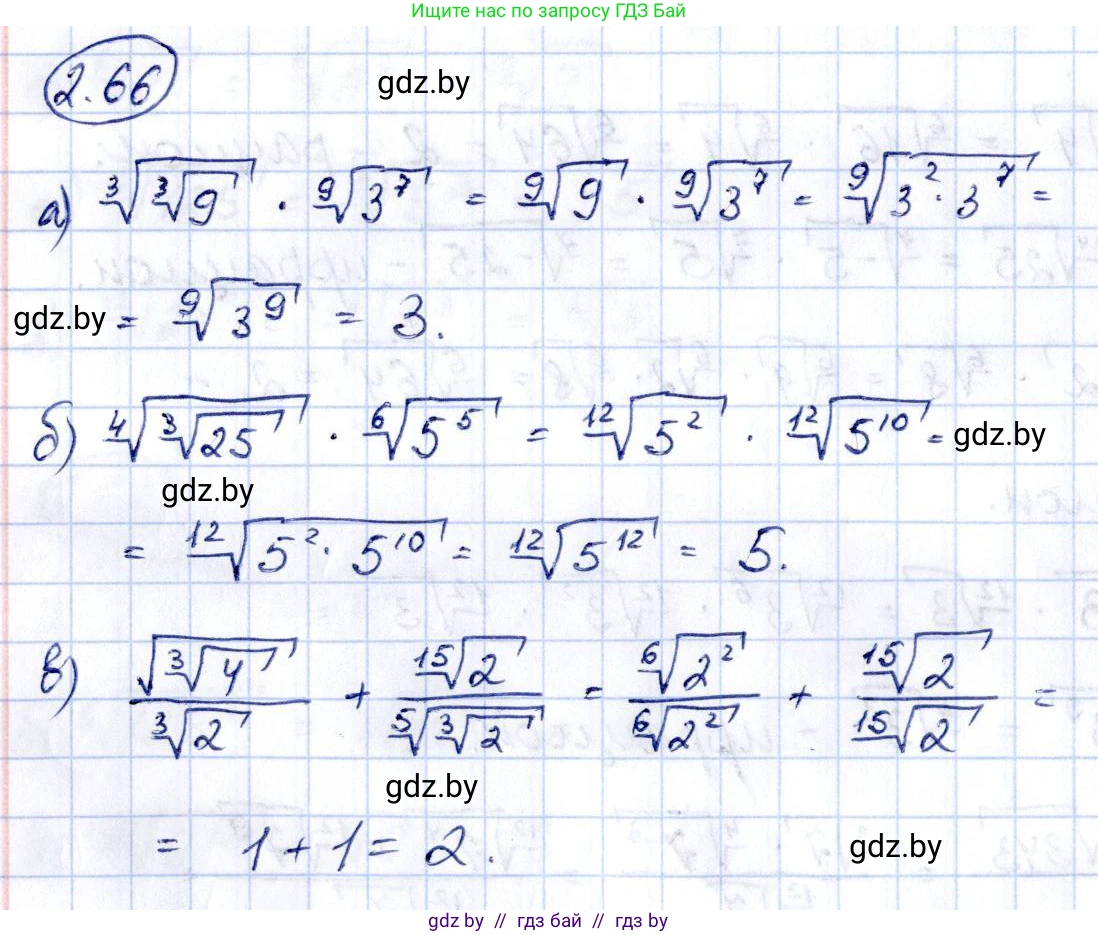 Ищите нас по запросу ГДЗ Бай
2.66
gdz.by
а) ∛(∛9) · ⁹√(3⁷) = ⁹√9 · ⁹√(3⁷) = ⁹√(3² · 3⁷) =
gdz.by = ⁹√(3⁹) = 3.
б) ⁴√(∛25) · ⁶√(5⁵) = ¹²√(5²) · ¹²√(5¹⁰) = gdz.by
gdz.by
= ¹²√(5² · 5¹⁰) = ¹²√(5¹²) = 5.
в) √(∛4) / ∛2 + ¹⁵√2 / ⁵√(∛2) = ⁶√(2²) / ⁶√(2²) + ¹⁵√2 / ¹⁵√2 =
gdz.by
= 1 + 1 = 2. gdz.by
gdz.by // гдз бай // гдз by